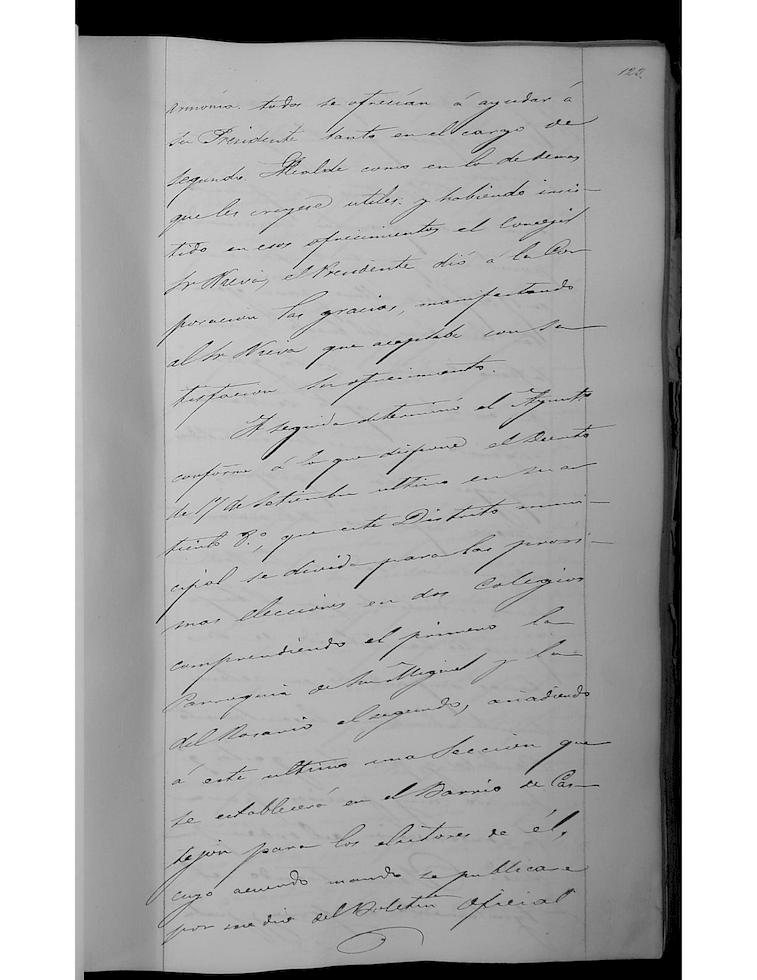 122.
Armonia todos se ofrecian á ayudar á
su Presidente tanto en el cargo de
segundo Alcalde como en lo de demas
que les creyese utiles: y habiendo insis-
tido en esos ofrecimientos el Concejal
Sr Nieva, el Presidente dió á la Cor
poracion las gracias, manifestando
al Sr Nieva que aceptaba con sa-
tisfacion su ofrecimiento.
A seguida determinó el Ayunto
conforme á lo que dispone el Decreto
de 17 de Setiembre ultimo en su ar
ticulo 8.º, que este Distrito muni-
cipal se divida para las procsi-
mas elecciones en dos Colegios
comprendiendo el primero la
Parroquia de San Miguel y la
del Rosario el segundo, añadiendo
á este ultimo una Seccion que
se establecerá en el Barrio de Cas-
tejon para los electores de él,
cuyo acuerdo mandó se publicase
por medio del Boletin Oficial